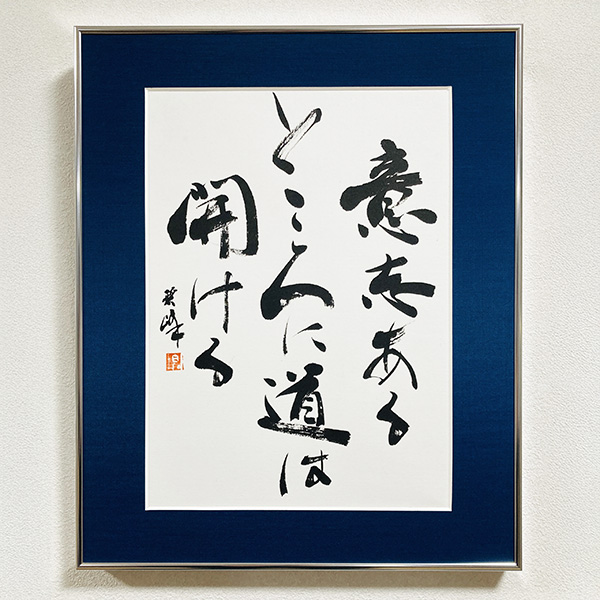 意志ある
ところに道は
開ける